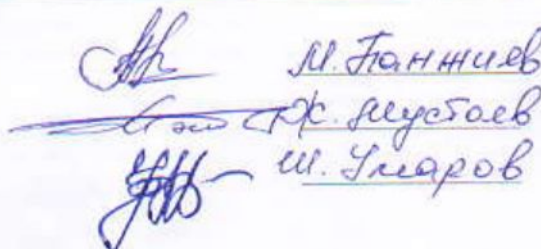 М. Панжиев
Ж. Мустаев
Ш. Умаров